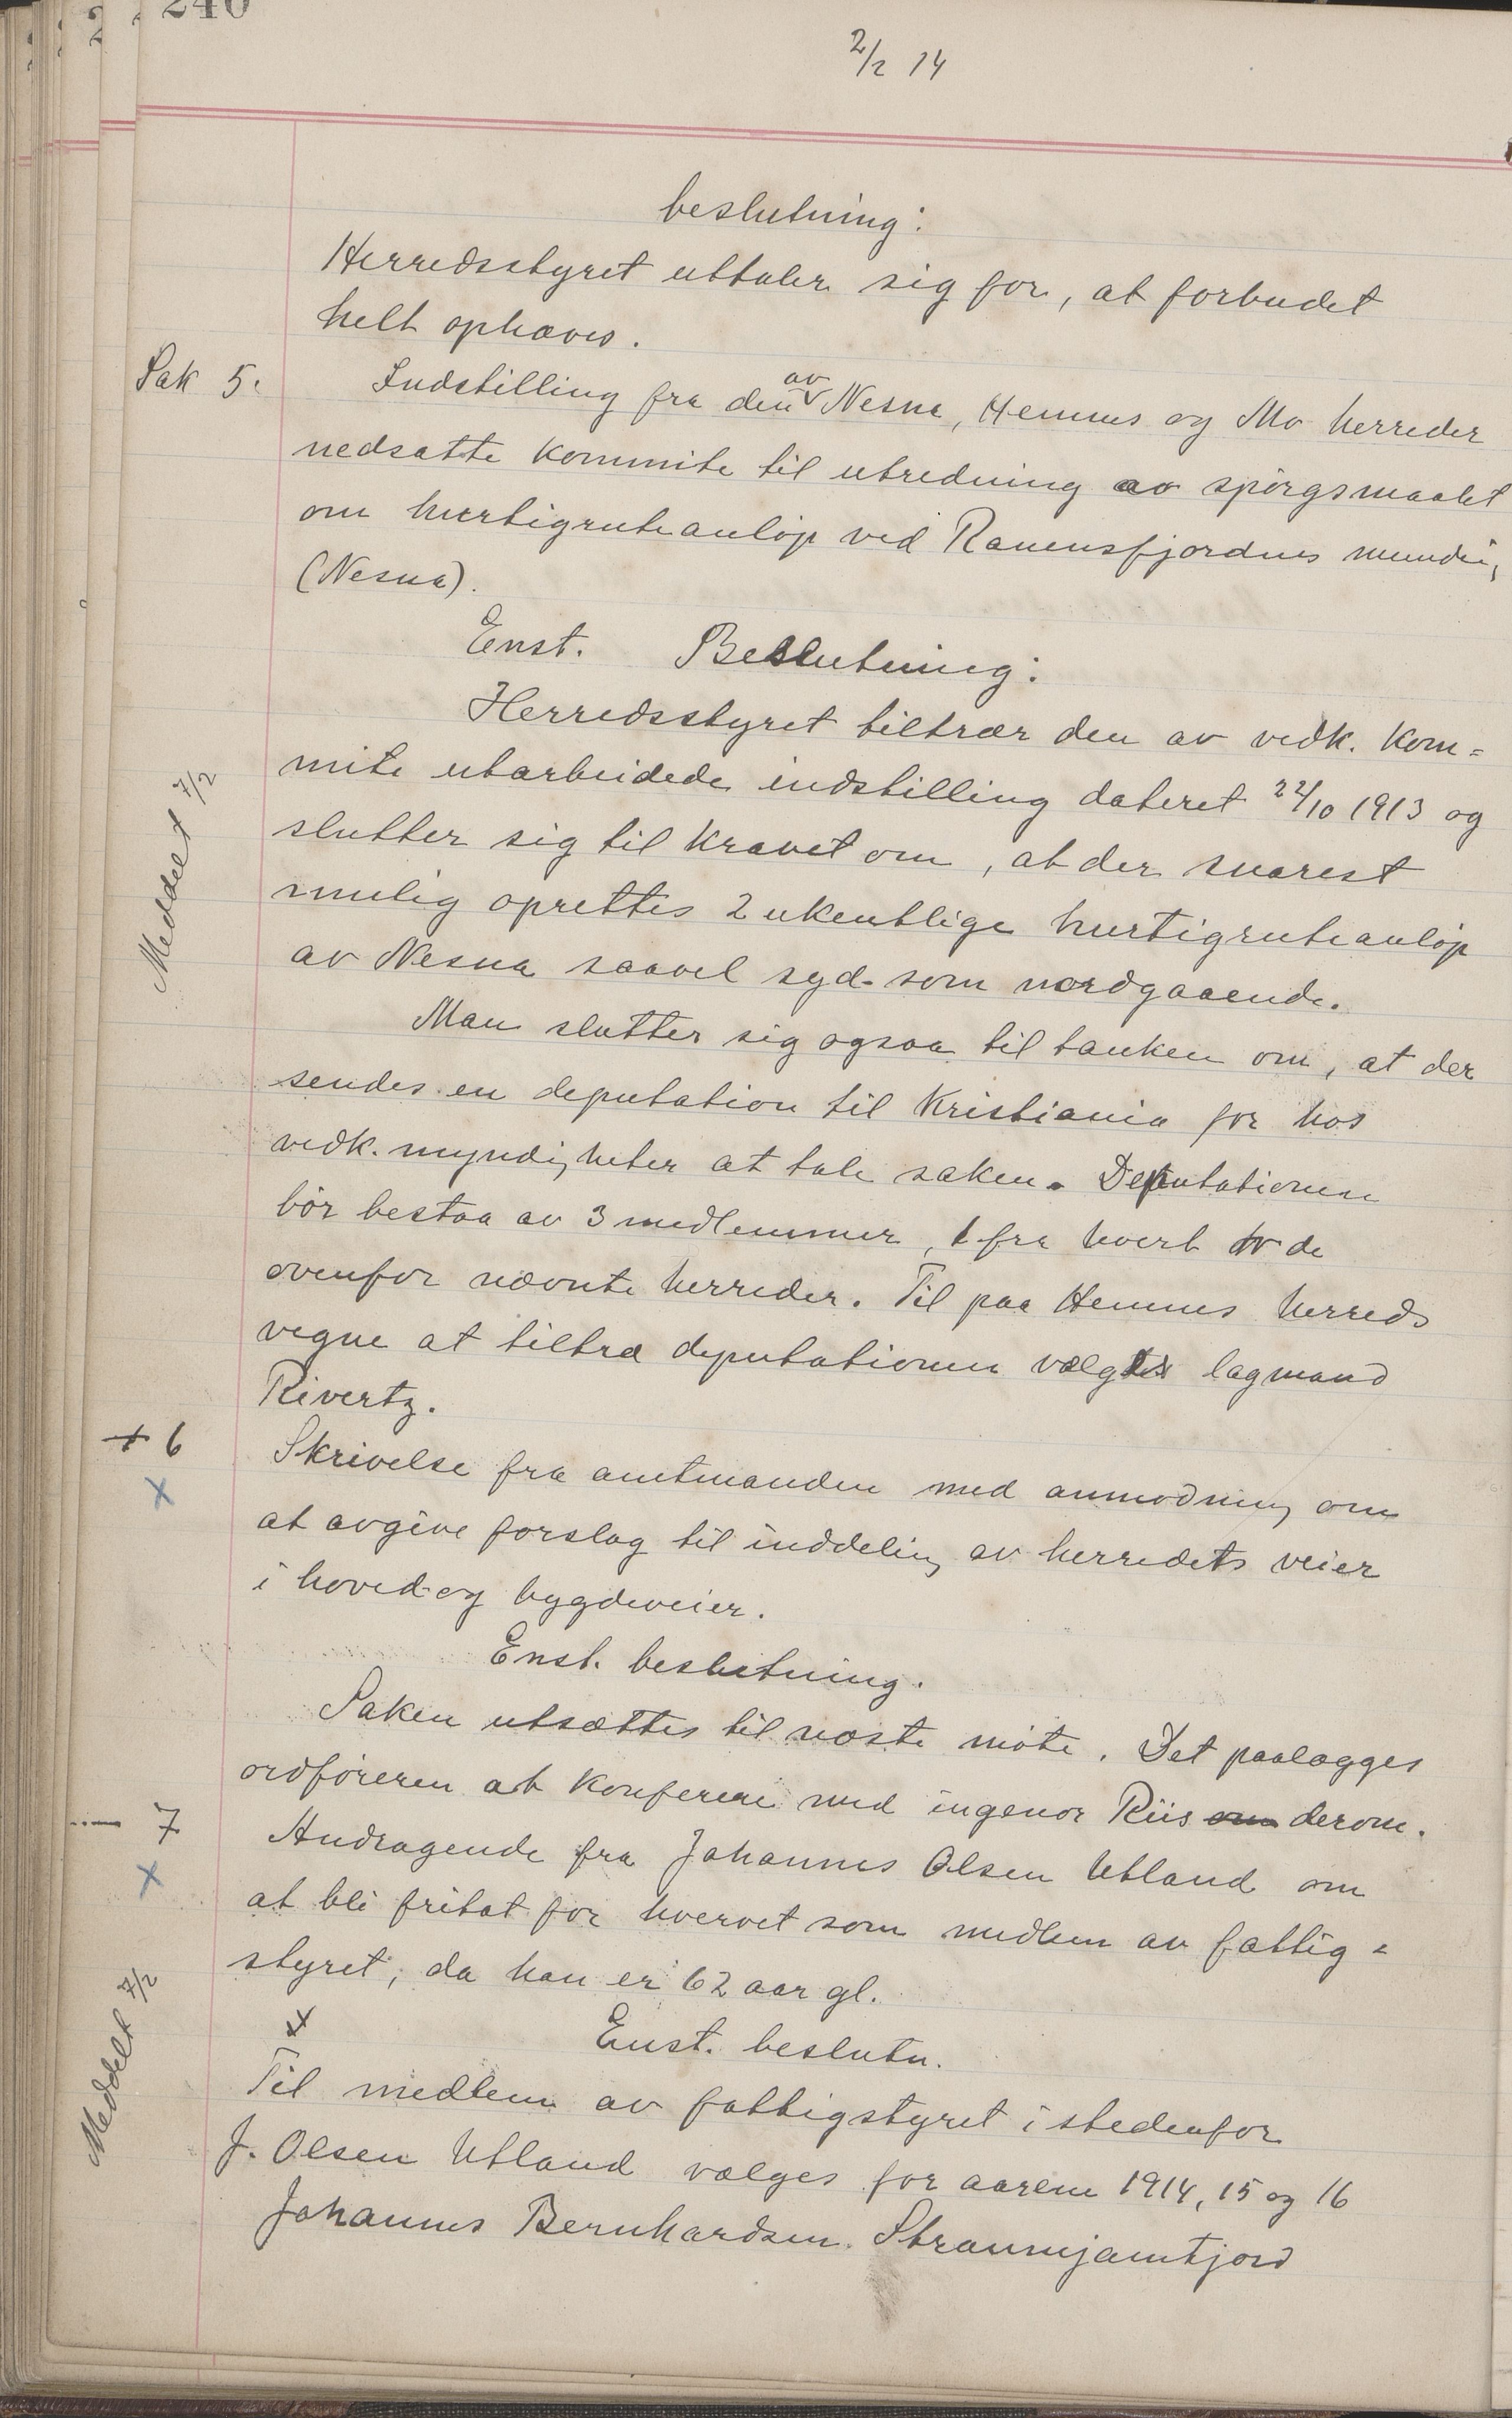 240
2/2 14
beslutning:
Herredsstyret uttaler sig for, at forbudet
helt ophæves.
Sak 5. Indstilling fra den av Nesna, Hemnes og Mo herreder
nedsatte kommite til utredning av spörgsmaalet
om hurtigruteanlöp ved Ranensfjordnes munding
(Nesna).
Enst. Beslutning:
Herredsstyret tiltrær den av vedk. kom=
mite utarbeidede indstilling dateret 22/10 1913 og
slutter sig til kravet om, at der snarest
mulig oprettes 2 ukentlige hurtigruteanlöp
av Nesna saavel syd- som nordgaaende.
Meddelt 7/2
Man slutter sig ogsaa til tanken om, at der
sendes en deputation til Kristiania for hos
vedk. myndigheter at tale saken. Deputationen
bör bestaa av 3 medlemmer, 1 fra hvert av de
ovenfor nævnte herreder. Til paa Hemnes herreds
vegne at tiltræ deputationen vælgtes lagmand
Rivertz.
+ 6 Skrivelse fra amtmanden med anmodning om
x
at avgive forslag til inddeling av herredets veier
i hoved- og bygdeveier.
Enst. beslutning.
Saken utsættes til næste möte. Det paalægges
ordföreren at konferere med ingenör Riis om derom.
—"— 7 Andragende fra Johannes Olsen Utland om
x
at bli fritat for hvervet som medlem av fattig=
styret, da han er 62 aar gl.
x Enst. beslutn.
Til medlem av fattigstyret istedenfor
J. Olsen Utland vælges for aarene 1914, 15 og 16
Meddelt 7/2
Johannes Bernhardsen